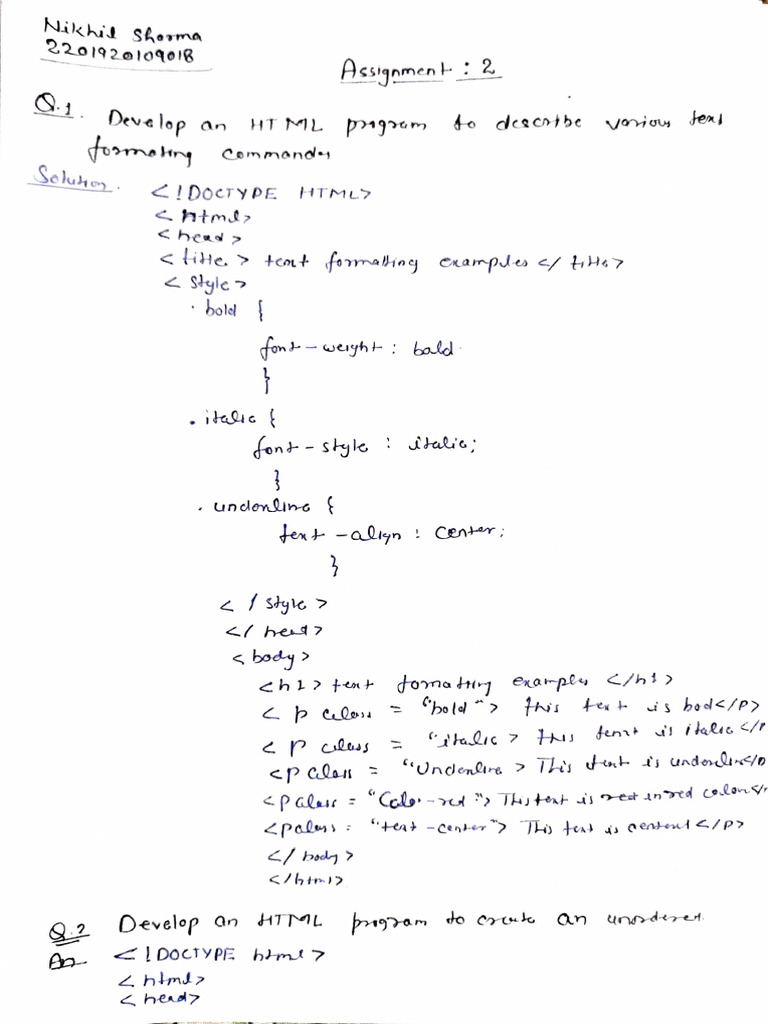 Nikhil Sharma
2201920109018
Assignment : 2
Q.1. Develop an HTML program to describe various text
formating commandes
Solution. <!DOCTYPE HTML>
<html>
<head>
<title> text formatting examples </title>
<style>
.bold {
font-weight : bold
}
.italic {
font-style : italic;
}
.underline {
text-align : center;
}
</style>
</head>
<body>
<h1> text formating examples </h1>
<p class = "bold"> This text is bod</p>
<p class = "italic> This text is italic</p
<p class = "Underline > This text is underline</p
<p class = "Color-red"> This text is in red color</
<p class = "text-center"> This text is centerd </p>
</body>
</html>
Q.2 Develop an HTML program to create an unordered
An <!DOCTYPE html>
<html>
<head>